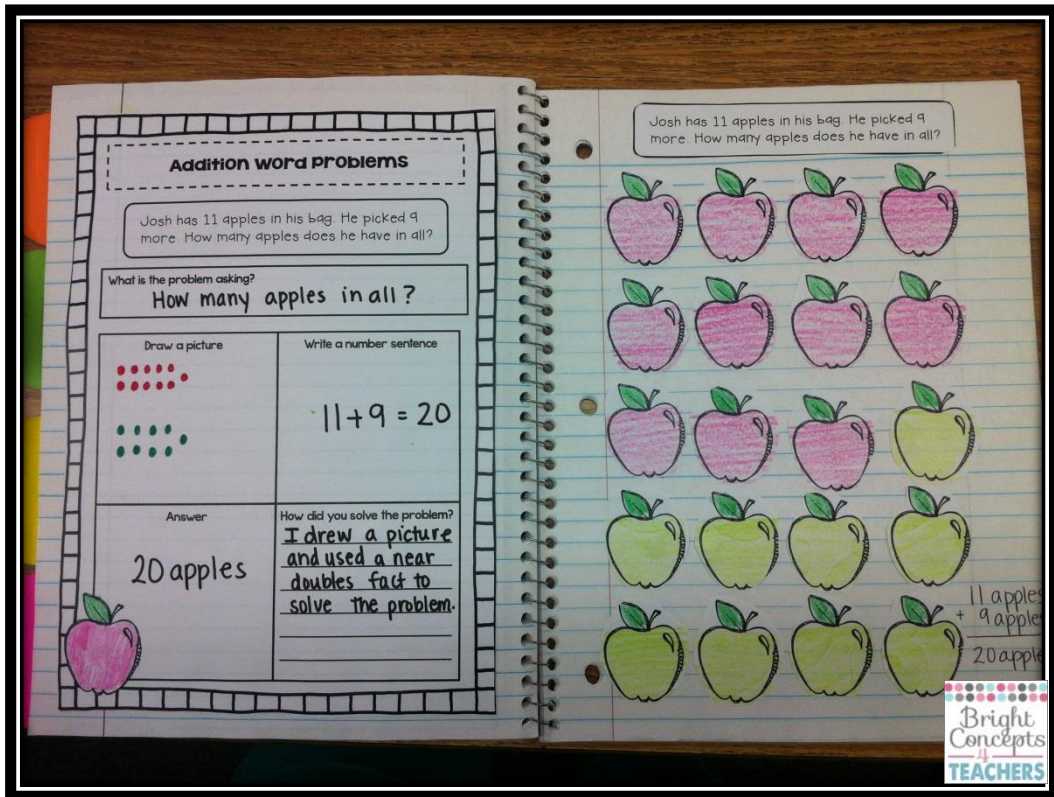 Addition Word Problems
Josh has 11 apples in his bag. He picked 9
more. How many apples does he have in all?
What is the problem asking?
How many apples in all?
Draw a picture
Write a number sentence
11+9 = 20
Answer
20 apples
How did you solve the problem?
I drew a picture
and used a near
doubles fact to
solve the problem.
Josh has 11 apples in his bag. He picked 9
more. How many apples does he have in all?
11 apples
+ 9 apple
20 apple
Bright
Concepts
4
TEACHERS